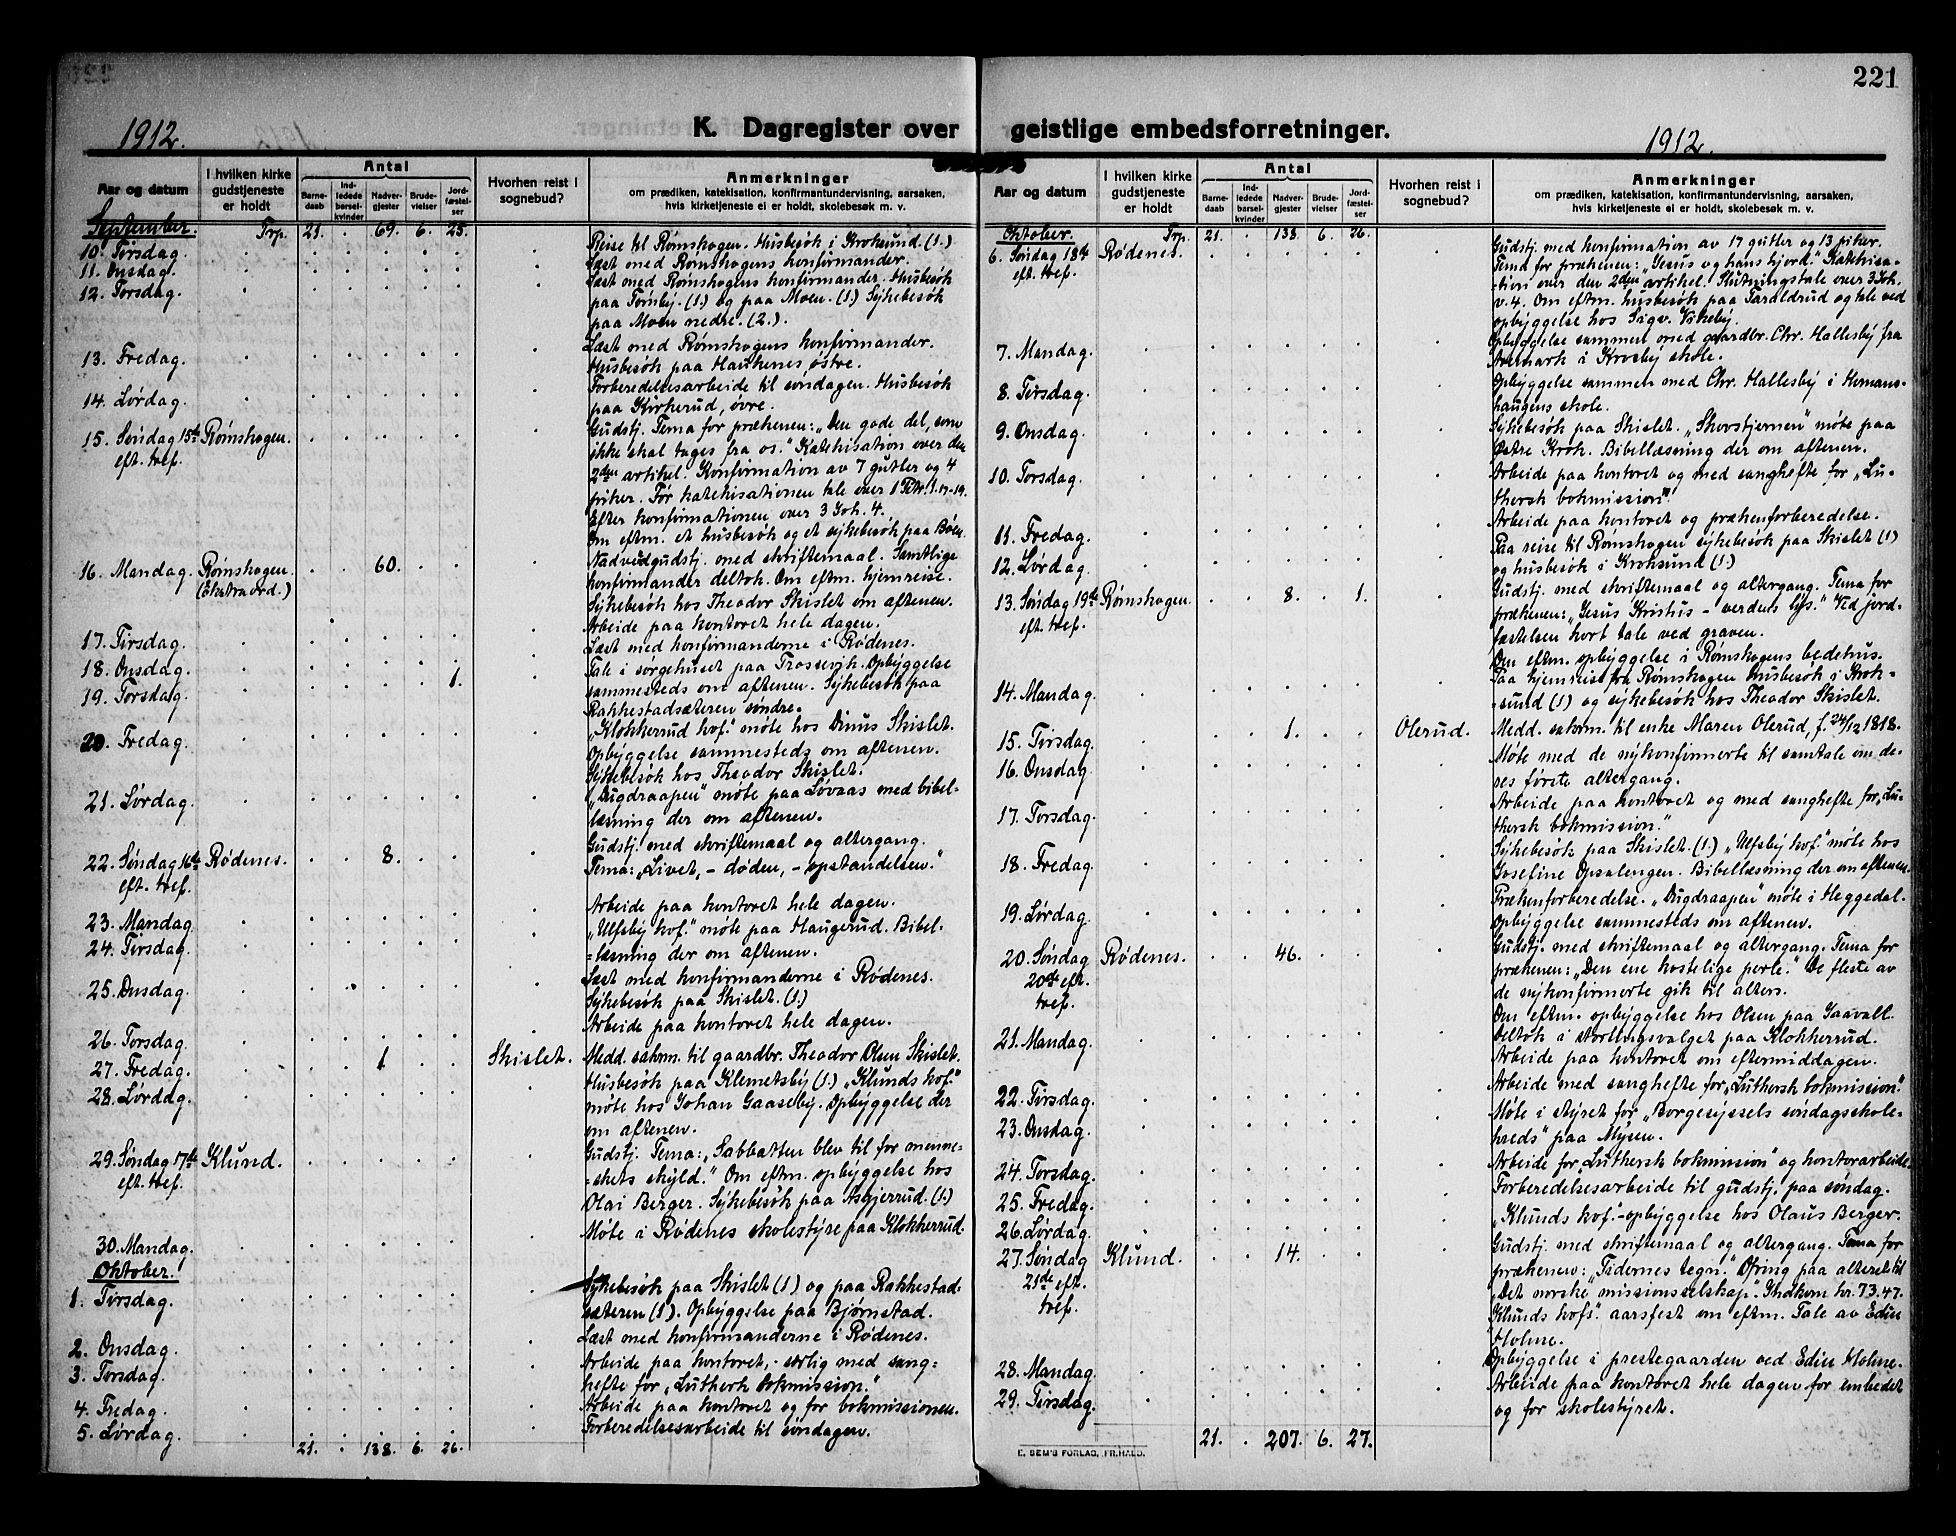 221
1912.
K. Dagregister over
Aar og datum
I hvilken kirke gudstjeneste er holdt
Antal
Barnedaab
Indledede barselkvinder
Nadvergjester
Brudevielser
Jordfæstelser
Hvorhen reist i sognebud?
Anmerkninger
om prædiken, katekisation, konfirmantundervisning, aarsaken,
hvis kirketjeneste ei er holdt, skolebesøk m. v.
September. Trp. 21. . 69. 6. 25.
10. Tirsdag. Reise til Rømskogen. Husbesøk i Kroksund. (1.)
11. Onsdag. Læst med Rømskogens konfirmander.
12. Torsdag. Læst med Rømskogens konfirmander. Husbesøk
paa Tørnby. (1.) og paa Moen. (1.) Sykebesøk
paa Moen nedre. (2.).
13. Fredag. Læst med Rømskogens konfirmander.
Husbesøk paa Haukenes, østre.
14. Lørdag. Forberedelsesarbeide til søndagen. Husbesøk
paa Kirkerud, øvre.
15. Søndag 15de Rømskogen. Gudstj. Tema for prækenen: „Den gode del, som
eft. tref. ikke skal tages fra os." Katekisation over den
2den artikel. Konfirmation av 7 gutter og 4
piker. Før katekisationen tale over 1 Petr. 1. 17-19.
Efter konfirmationen over 3 Joh. 4.
Om eftm. et husbesøk og et sykebesøk paa Bøen.
16. Mandag. Rømskogen. 60. Nadverdgudstj. med skriftemaal. Samtlige
(Ekstraord.) konfirmander deltok. Om eftm. hjemreise.
Sykebesøk hos Theodor Skislet om aftenen.
17. Tirsdag. Arbeide paa kontoret hele dagen.
18. Onsdag. Læst med konfirmanderne i Rødenes.
19. Torsdag. 1. Tale i sørgehuset paa Trosservik. Opbyggelse
sammesteds om aftenen. Sykebesøk paa
Rakkestadsæteren søndre.
20. Fredag. „Klokkerud kof." møte hos Dinus Skislet.
Opbyggelse sammesteds om aftenen.
Sykebesøk hos Theodor Skislet.
21. Lørdag. „Dugdraapen" møte paa Løvaas med bibel-
læsning der om aftenen.
22. Søndag 16de Rødenes. 8. Gudstj. med skriftemaal og altergang.
eft. tref. Tema: „Livet, - døden, - opstandelsen."
23. Mandag Arbeide paa kontoret hele dagen.
24. Tirsdag. „Ulfsby kof." møte paa Haugerud. Bibel-
=læsning der om aftenen.
25. Onsdag. Læst med konfirmanderne i Rødenes.
Sykebesøk paa Skislet. (1.)
26. Torsdag. Arbeide paa kontoret hele dagen.
27. Fredag. 1 Skislet. Medd. sakrm. til gaardbr. Theodor Olsen Skislet.
28. Lørdag. Husbesøk paa Klemetsby (1.) „Klunds kof."
møte hos Johan Gaaseby. Opbyggelse der
om aftenen.
29. Søndag 17de Klund. Gudstj. Tema: „Sabbatten blev til for menne-
eft. tref. =skets skyld." Om eftm. opbyggelse hos
Olai Berger. Sykebesøk paa Asgjerrud. (1.)
30. Mandag. Møte i Rødenes skolestyre paa Klokkerrud.
Oktober.
1. Tirsdag. Sykebesøk paa Skislet (1) og paa Rakkestad-
sæteren (1). Opbyggelse paa Bjørnstad.
2. Onsdag. Læst med konfirmanderne i Rødenes.
3. Torsdag. Arbeide paa kontoret, - særlig med sang=
hefte for „Luthersk bokmission."
4. Fredag. Arbeide paa kontoret og for bokmissionen.
5. Lørdag. Forberedelsesarbeide til søndagen.
21. . 138. 6. 26.
geistlige embedsforretninger.
1912.
Aar og datum
I hvilken kirke gudstjeneste er holdt
Antal
Barnedaab
Indledede barselkvinder
Nadvergjester
Brudevielser
Jordfæstelser
Hvorhen reist i sognebud?
Anmerkninger
om prædiken, katekisation, konfirmantundervisning, aarsaken,
hvis kirketjeneste ei er holdt, skolebesøk m. v.
Oktober. Trp. 21. . 138. 6 26.
6. Søndag 18de Rødenes. Gudstj. med konfirmation av 17 gutter og 13 piker.
eft. tref. Tema for prækenen: „Jesus og hans hjord." Katekisa-
-tion over den 2den artikel. Slutningstale over 3 Joh.
v. 4. Om eftm. husbesøk paa Taraldrud og tale ved
opbyggelse hos Sigv. Vikeby.
7. Mandag. Opbyggelse sammen med gaardbr. Chr. Hallesby fra
Aremark i Krosby skole.
8. Tirsdag. Opbyggelse sammen med Chr. Hallesby i Hermans-
haugens skole.
9. Onsdag. Sykebesøk paa Skislet. „Skovstjernen" møte paa
Østre Krok. Bibellæsning der om aftenen.
10. Torsdag. Arbeide paa kontoret og med sanghefte for „Lu-
thersk bokmission".
11. Fredag. Arbeide paa kontoret og prækenforberedelse.
12. Lørdag. Paa reise til Rømskogen sykebesøk paa Skislet (1)
og husbesøk i Kroksund (1.)
13. Søndag 19de Rømskogen. 8. 1. Gudstj. med skriftemaal og altergang. Tema for
eft. tref. prækenen: „Jesus Kristus - verdens lys." Ved jord-
fæstelsen kort tale ved graven.
Om eftm. opbyggelse i Rømskogens bedehus.
14. Mandag. Paa hjemreise fra Rømskogen husbesøk i Krok-
-sund (1) og sykebesøk hos Theodor Skislet.
15. Tirsdag. 1. Olerud. Medd. sakrm. til enke Maren Olerud, f. 24/12 1818.
16. Onsdag. Møte med de nykonfirmerte til samtale om de-
res første altergang.
17. Torsdag. Arbeide paa kontoret og med sanghefte for „Lu-
thersk bokmission."
18. Fredag. Sykebesøk paa Skislet. (1.) „Ulfsby kof." møte hos
Josefine Opsalengen. Bibellæsning der om aftenen.
19. Lørdag. Prækenforberedelse. „Dugdraapen" møte i Heggedal.
Opbyggelse sammesteds om aftenen.
20. Søndag Rødenes. 46. Gudstj. med skriftemaal og altergang. Tema for
20de eft. prækenen: „Den ene kostelige perle." De fleste av
tref. de nykonfirmerte gik til alters.
Om eftm. opbyggelse hos Olsen paa Gaavall.
21. Mandag. Deltok i stortingsvalget paa Klokkerrud.
Arbeide paa kontoret om eftermiddagen.
22. Tirsdag. Arbeide med sanghefte for „Luthersk bokmission."
23. Onsdag. Møte i styret for „Borgesyssels søndagsskole-
kreds" paa Mysen.
24. Torsdag. Arbeide for „Luthersk bokmission" og kontorarbeide.
25. Fredag. Forberedelsesarbeide til gudstj. paa søndag.
26. Lørdag. „Klunds kof."-opbyggelse hos Olaus Berger.
27. Søndag Klund. 14. Gudstj. med skriftemaal og altergang. Tema for
21de eft. prækenen: „Tidernes tegn." Ofring paa alteret til
tref. „Det norske missionsselskap". Indkom kr. 73.47.
„Klunds kofs". aarsfest om eftm. Tale av Edin
Holme.
28. Mandag. Opbyggelse i prestegaarden ved Edin Holme.
29. Tirsdag. Arbeide paa kontoret hele dagen for embedet
og for skolestyret.
21. . 207. 6. 27.
E. SEM'S FORLAG, FR.HALD.